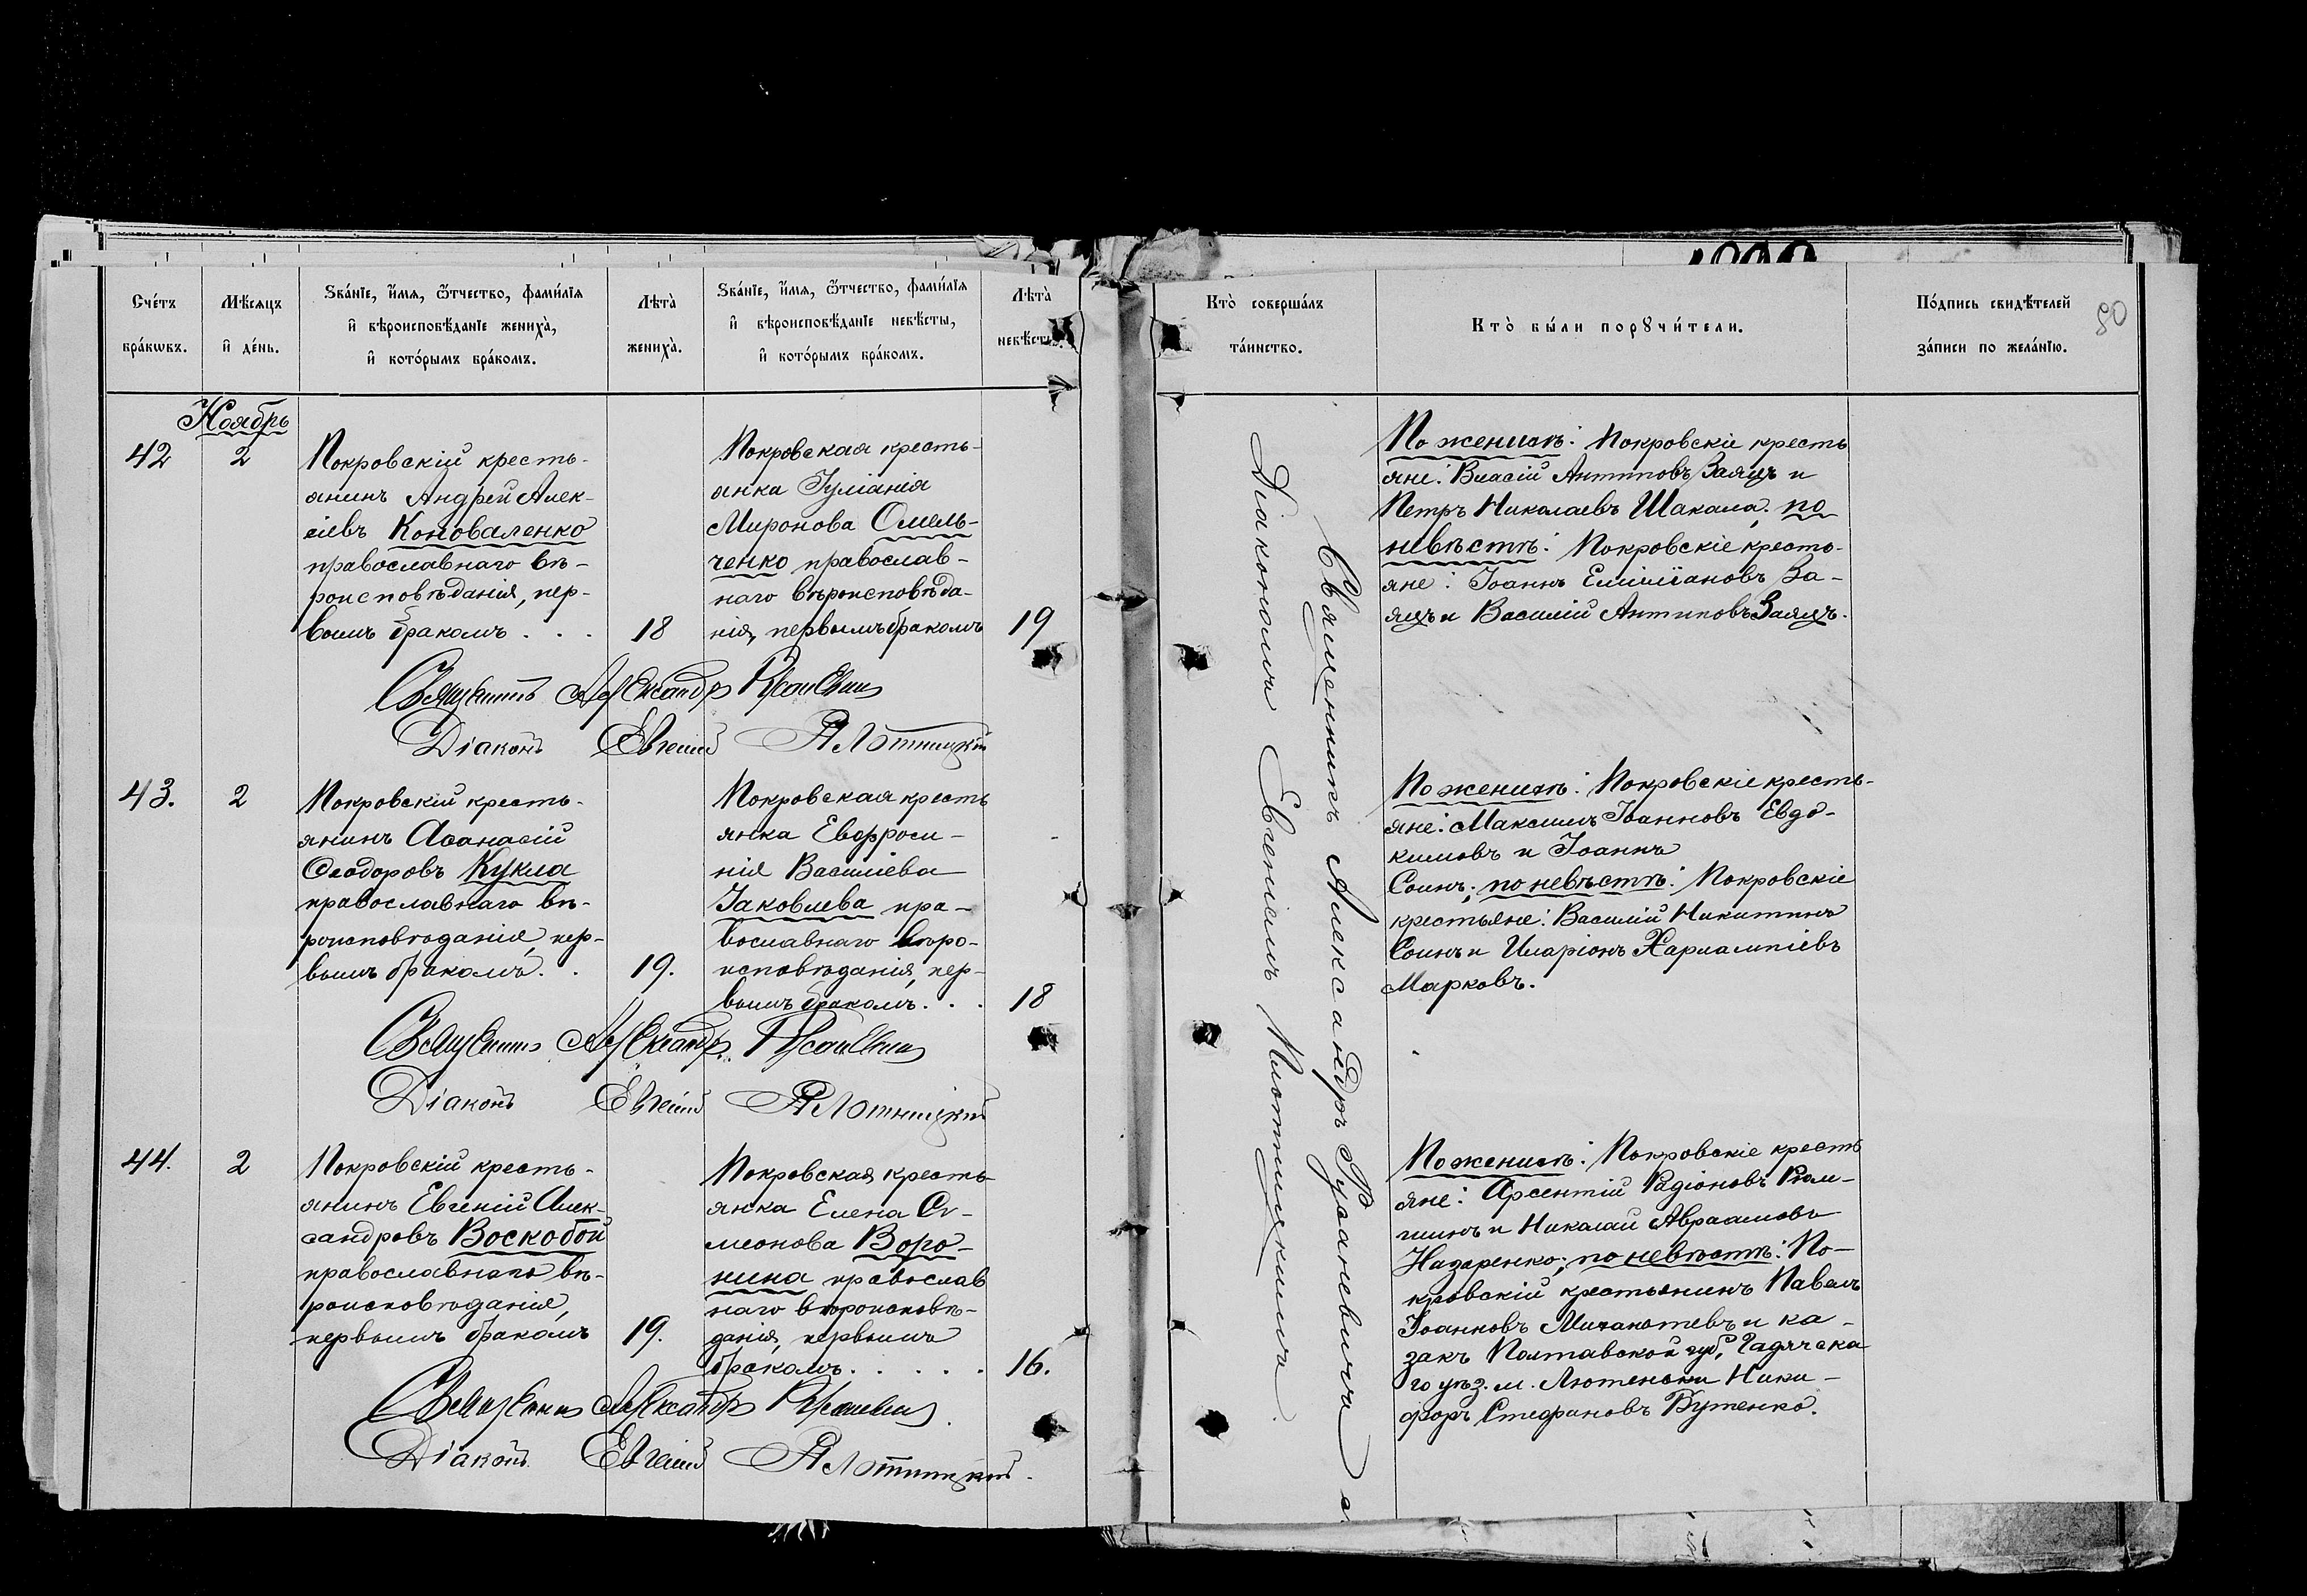 Счетъ браковъ.
Мѣсяцъ и день.
Званіе, имя, отчество, фамилія и вѣроисповѣданіе жениха, и которымъ бракомъ.
Лѣта жениха.
Званіе, имя, отчество, фамилія и вѣроисповѣданіе невѣсты, и которымъ бракомъ.
Лѣта невѣсты.
Ноябрь
42
2
Покровскій кресть-
янинъ Андрей Алек-
сіевъ Коноваленко
православнаго вѣ-
роисповѣданія, пер-
вымъ бракомъ . . .
18
Покровская кресть-
янка Іуліанія
Миронова Омель-
ченко православ-
наго вѣроисповѣда-
нія, первымъ бракомъ
19
Священникъ Александръ
Діаконъ Евгеній Плотницкій
43.
2
Покровскій кресть-
янинъ Аѳанасій
Ѳеодоровъ Кукла
православнаго вѣ-
роисповѣданія, пер-
вымъ бракомъ . .
19.
Покровская кресть
янка Евфроси-
нія Василіева
Іаковлева пра-
вославнаго вѣро-
исповѣданія, пер-
вымъ бракомъ . . .
18
Священникъ Александръ
Діаконъ Евгеній Плотницкій
44.
2
Покровскій кресть-
янинъ Евгеній Алек-
сандровъ Воскобой
православнаго вѣ-
роисповѣданія,
первымъ бракомъ
19.
Покровская кресть-
янка Елена Си-
меонова Воро-
нина православ
наго вѣроисповѣ-
данія, первымъ
бракомъ . . . . .
16.
Священникъ Александръ
Діаконъ Евгеній Плотницкій
Кто совершалъ таинство.
Кто были поручители.
Подпись свидѣтелей записи по желанію.
80
Священникъ Александръ Русаневичъ съ
Діакономъ Евгеніемъ Плотницкимъ.
По женихѣ: Покровскіе кресть
яне: Власій Антиповъ Заяцъ и
Петръ Николаевъ Шакала; по
невѣстѣ: Покровскіе кресть-
яне: Іоаннъ Емиліановъ За-
яцъ и Василій Антиповъ Заяцъ.
По женихѣ: Покровскіе кресть-
яне: Максимъ Іоанновъ Евдо-
кимовъ и Іоаннъ
Соинъ; по невѣстѣ: Покровскіе
крестьяне: Василій Никитинъ
Соинъ и Иларіонъ Харлампіевъ
Марковъ.
По женихѣ: Покровскіе кресть
яне: Арсентій Радіоновъ
и Николай Авраамовъ
Назаренко; по невѣстѣ: По-
кровскій крестьянинъ Павелъ
Іоанновъ и ка-
закъ Полтавской губ, Гадячска
го уѣз. м. Лютеньки Ники-
форъ Стефановъ Бутенко.